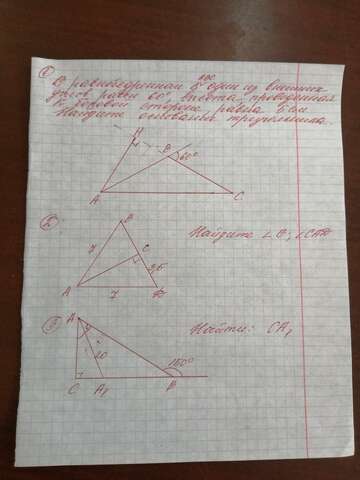 1
АВС
В равнобедренном Δ один из внешних
углов равен 60° высота, проведенная
к боковой стороне равна 5 см
Найдите основания треугольника.
Н
В
60°
А
С
2
В
7
С
3,5
А
7
Найдите ∠В; ∠САВ
3
А
20
150°
С
А₁
В
Найти: СА₁